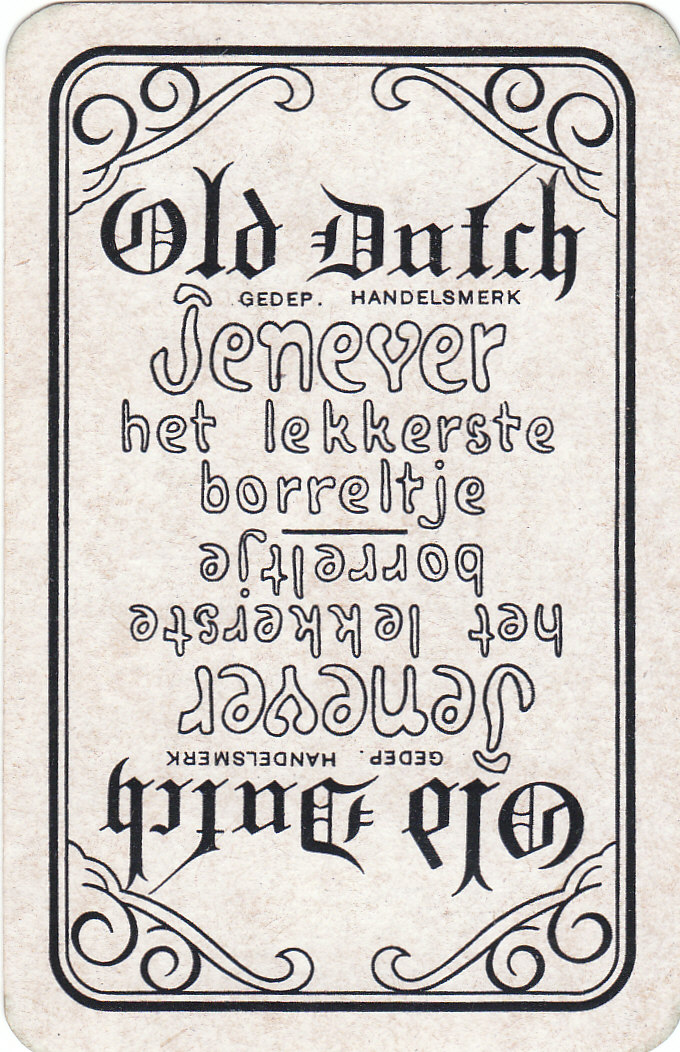 Old Dutch
GEDEP. HANDELSMERK
Jenever
het lekkerste
borreltje
borreltje
het lekkerste
Jenever
GEDEP. HANDELSMERK
Old Dutch